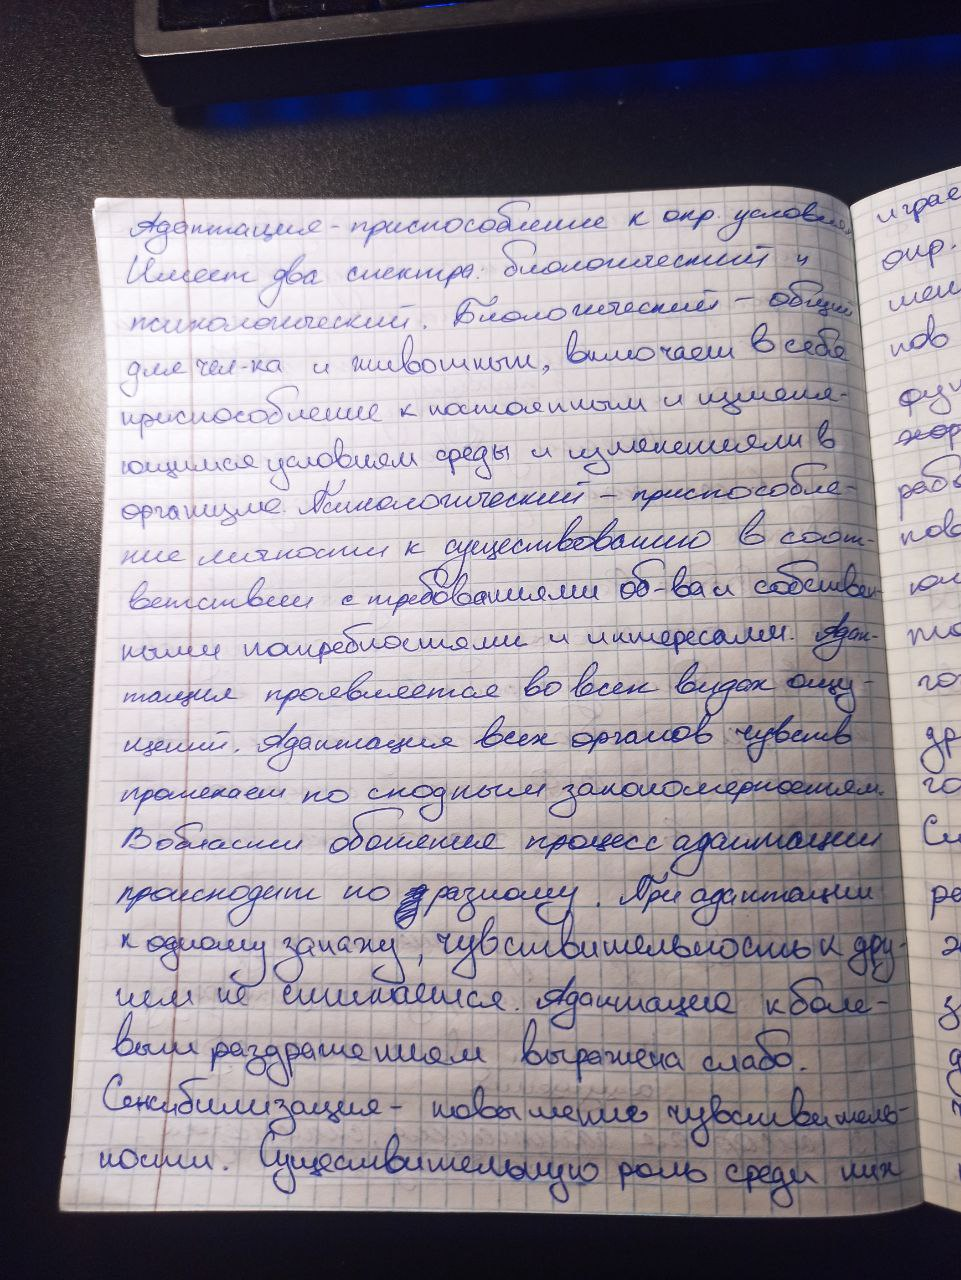 Адаптация - приспособление к опр. условиям
Имеет два спектра: биологический и
психологический. Биологический - общий
для чел-ка и животных, включает в себя
приспособление к постоянным и изменя-
ющимся условиям среды и изменениям в
организме. Психологический - приспособле-
ние личности к существованию в соот-
ветствии с требованиями об-ва и собствен-
ными потребностями и интересами. Адап-
тация проявляется во всех видах ощу-
щений. Адаптация всех органов чувств
протекает по сходным закономерностям.
В области обоняния процесс адаптации
происходит по разному. При адаптации
к одному запаху, чувствительность к дру-
гим не снижается. Адаптация к боле-
вым раздражениям выражена слабо.
Сенсибилизация - повышение чувствитель-
ности. Существительную роль среди них
играе
опр.
шен
пов
фун
рабо
пов
го
др
го